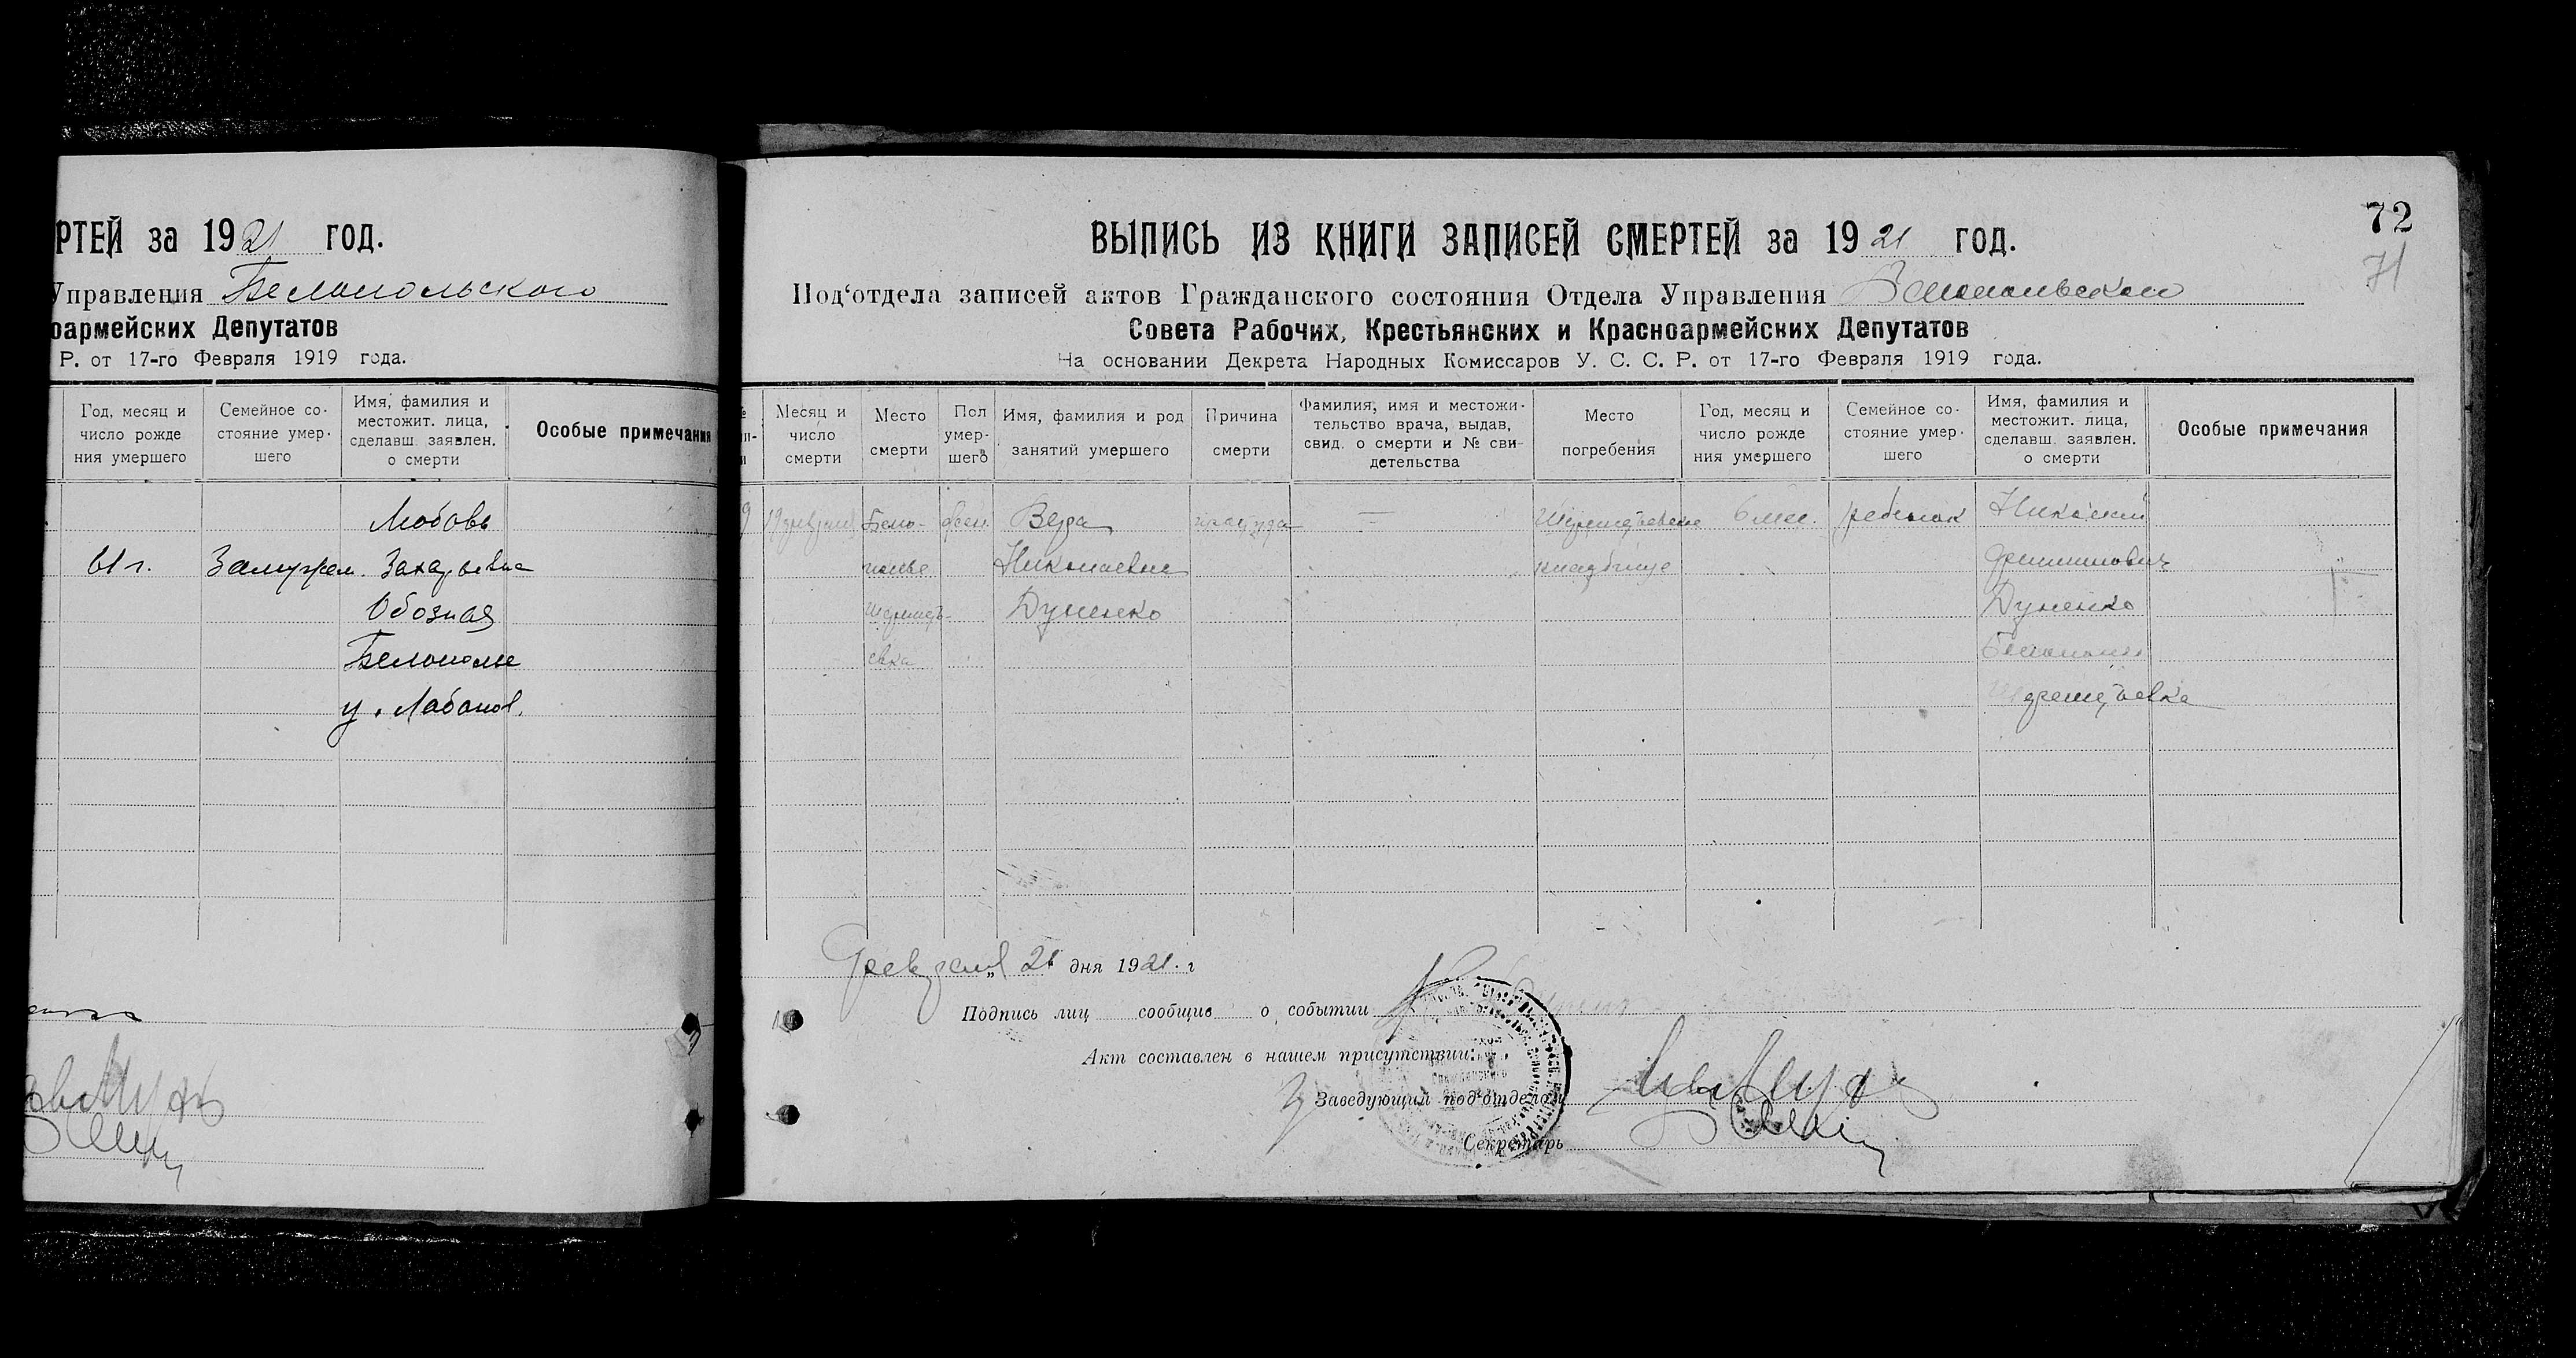 РТЕЙ за 1921 год.
Управления Белопольского
оармейских Депутатов
Р. от 17-го Февраля 1919 года.
Год, месяц и
число рожде
ния умершего
Семейное со-
стояние умер-
шего
Имя, фамилия и
местожит. лица,
сделавш. заявлен.
о смерти
Особые примечания
Любовь
61 г. Замужем. Захарьевна
Обозная
Белополье
у. Лобанов.
72
71
ВЫПИСЬ ИЗ КНИГИ ЗАПИСЕЙ СМЕРТЕЙ за 1921 год.
Под‘отдела записей актов Гражданского состояния Отдела Управления Белопольского
Совета Рабочих, Крестьянских и Красноармейских Депутатов
На основании Декрета Народных Комиссаров У. С. С. Р. от 17-го Февраля 1919 года.
Месяц и
число
смерти
Место
смерти
Пол
умер-
шего
Имя, фамилия и род
занятий умершего
Причина
смерти
Фамилия, имя и местожи-
тельство врача, выдав,
свид. о смерти и № сви-
детельства
Место
погребения
Год, месяц и
число рожде
ния умершего
Семейное со-
стояние умер-
шего
Имя, фамилия и
местожит. лица,
сделавш. заявлен.
о смерти
Особые примечания
9 19 февраля Бело- жен. Вера — 6 мес. ребенок Николай
полье Николаевна кладбище Филиппович
Дуненко Дуненко
евка Белополье
февраля „ 21 дня 1921. г
Подпись лиц сообщив о событии
Акт составлен в нашем присутствии:
Заведующий под‘отделом
Секретарь